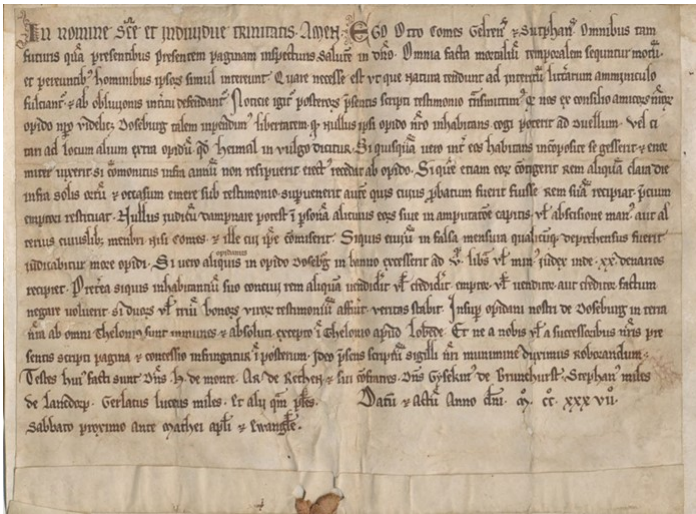 In nomine Sce et individue trinitatis. Amen. Ego Otto Comes Gelren & Sutphan Omnibus tam
futuris quā presentibus presentem paginam inspecturis salutē in dno. Omnia facta mortaliū temporalem sequuntur motū.
et pereuntib hominibus ipsos simul intereunt. Quare necesse est ut que natura tendunt ad interitū litterarum amminiculo
fulciant & ab oblivionis defendant. Noticie igit posteros psentis scripti testimonio qd nos ex consilio amicor nror
opido nro videlic Doseburg talem libertatem qd Nullus ipsi opido nro inhabitans cogi poterit ad Duellum. Vel ci
tari ad locum alium extra opidū qd heimal in vulgo dicitur. Si quisquā vero int eos habitans incomposite se gesserit & enor
miter vixerit si comonitus infra annū non resipuerit erect recedat ab opido. Si que etiam eos contigerit rem aliquā clara die
infra solis ortū & occasum emere sub testimonio supuenerit aute quis cuius pbatum fuerit fuisse rem suā recipiat. pcium
emptori restituat. Nullus iudicū dampnare potest ī psonā alicuius eos sive in amputatione capitis vl abscisione man aut al
terius cuiuslib menbri nisi Comes & ille cui ipse comiserit. Siquis in falsa mensura qualicūq deprehensus fuerit
iudicabitur more opidi. Si vero aliquis opidanus in opido Dosebg in banno excesserit ad v. libs vl min iudex inde xx denarios
recipiet. Preterea siquis inhabitantiū suo concivi rem aliquā vendidit vl credidit emptor vl venditor aut creditor factum
negare voluerit si duos vl triū bonor viror testimoniū affuit veritas stabit. Insup opidani nostri de Doseburg in terra
nra ab omni theloneo sunt inmunes & absoluti excepto ī theloneo apud Lobede. Et ne a nobis vl a successoribus nris pre
sentis scripti pagina & concessio infringatur ī posterum. Ideo psens scriptū sigilli nri munimine duximus roborandum.
Testes hui facti sunt Dns H. de monte. Ar. de Rethen & sui cōfratres. Dns Gysekin de Brunchurst. Stephan miles
de Lancdorp. Gerlacus luceus miles. Et alii qm ples. Datū & actū Anno dni. M CC XXX VII.
Sabbato proximo ante Mathei apli & Ewangle.